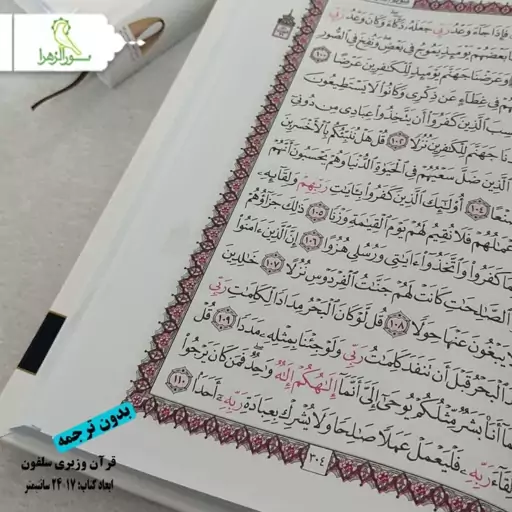 سورالزهرا
فَإِذَا جَآءَ وَعْدُ رَبِّي جَعَلَهُۥ دَكَّآءَ وَكَانَ وَعْدُ رَبِّي
بَعْضَهُمْ يَوْمَئِذٍ يَمُوجُ فِي بَعْضٍ وَنُفِخَ فِي الصُّورِ
وَعَرَضْنَا جَهَنَّمَ يَوْمَئِذٍ لِلْكَٰفِرِينَ عَرْضًا ١٠٠
فِي غِطَآءٍ عَنْ ذِكْرِي وَكَانُوا لَا يَسْتَطِيعُونَ
الَّذِينَ كَفَرُوا أَنْ يَتَّخِذُوا عِبَادِي مِنْ دُونِي
جَهَنَّمَ لِلْكَٰفِرِينَ نُزُلًا ١٠٢ قُلْ هَلْ نُنَبِّئُكُمْ بِالْأَخْسَرِينَ
الَّذِينَ ضَلَّ سَعْيُهُمْ فِي الْحَيَوٰةِ الدُّنْيَا وَهُمْ يَحْسَبُونَ أَنَّهُمْ
١٠٤ أُولَٰٓئِكَ الَّذِينَ كَفَرُوا بِـَٔايَٰتِ رَبِّهِمْ وَلِقَآئِهِ
فَلَا نُقِيمُ لَهُمْ يَوْمَ الْقِيَٰمَةِ وَزْنًا ١٠٥ ذَٰلِكَ جَزَآؤُهُمْ
كَفَرُوا وَاتَّخَذُوا ءَايَٰتِي وَرُسُلِي هُزُوًا ١٠٦ إِنَّ الَّذِينَ ءَامَنُوا
الصَّٰلِحَٰتِ كَانَتْ لَهُمْ جَنَّٰتُ الْفِرْدَوْسِ نُزُلًا ١٠٧ خَٰلِدِينَ
يَبْغُونَ عَنْهَا حِوَلًا ١٠٨ قُلْ لَوْ كَانَ الْبَحْرُ مِدَادًا لِكَلِمَٰتِ رَبِّي
الْبَحْرُ قَبْلَ أَنْ تَنْفَدَ كَلِمَٰتُ رَبِّي وَلَوْ جِئْنَا بِمِثْلِهِۦ مَدَدًا ١٠٩ قُلْ
أَنَا۠ بَشَرٌ مِثْلُكُمْ يُوحَىٰٓ إِلَيَّ أَنَّمَآ إِلَٰهُكُمْ إِلَٰهٌ وَٰحِدٌ فَمَنْ كَانَ يَرْجُوا
لِقَآءَ رَبِّهِۦ فَلْيَعْمَلْ عَمَلًا صَٰلِحًا وَلَا يُشْرِكْ بِعِبَادَةِ رَبِّهِۦٓ أَحَدًا ١١٠
٣٠٤
بدون ترجمه
قرآن وزیری سلفون
ابعاد کتاب: ۱۷-۲۴ سانتیمتر